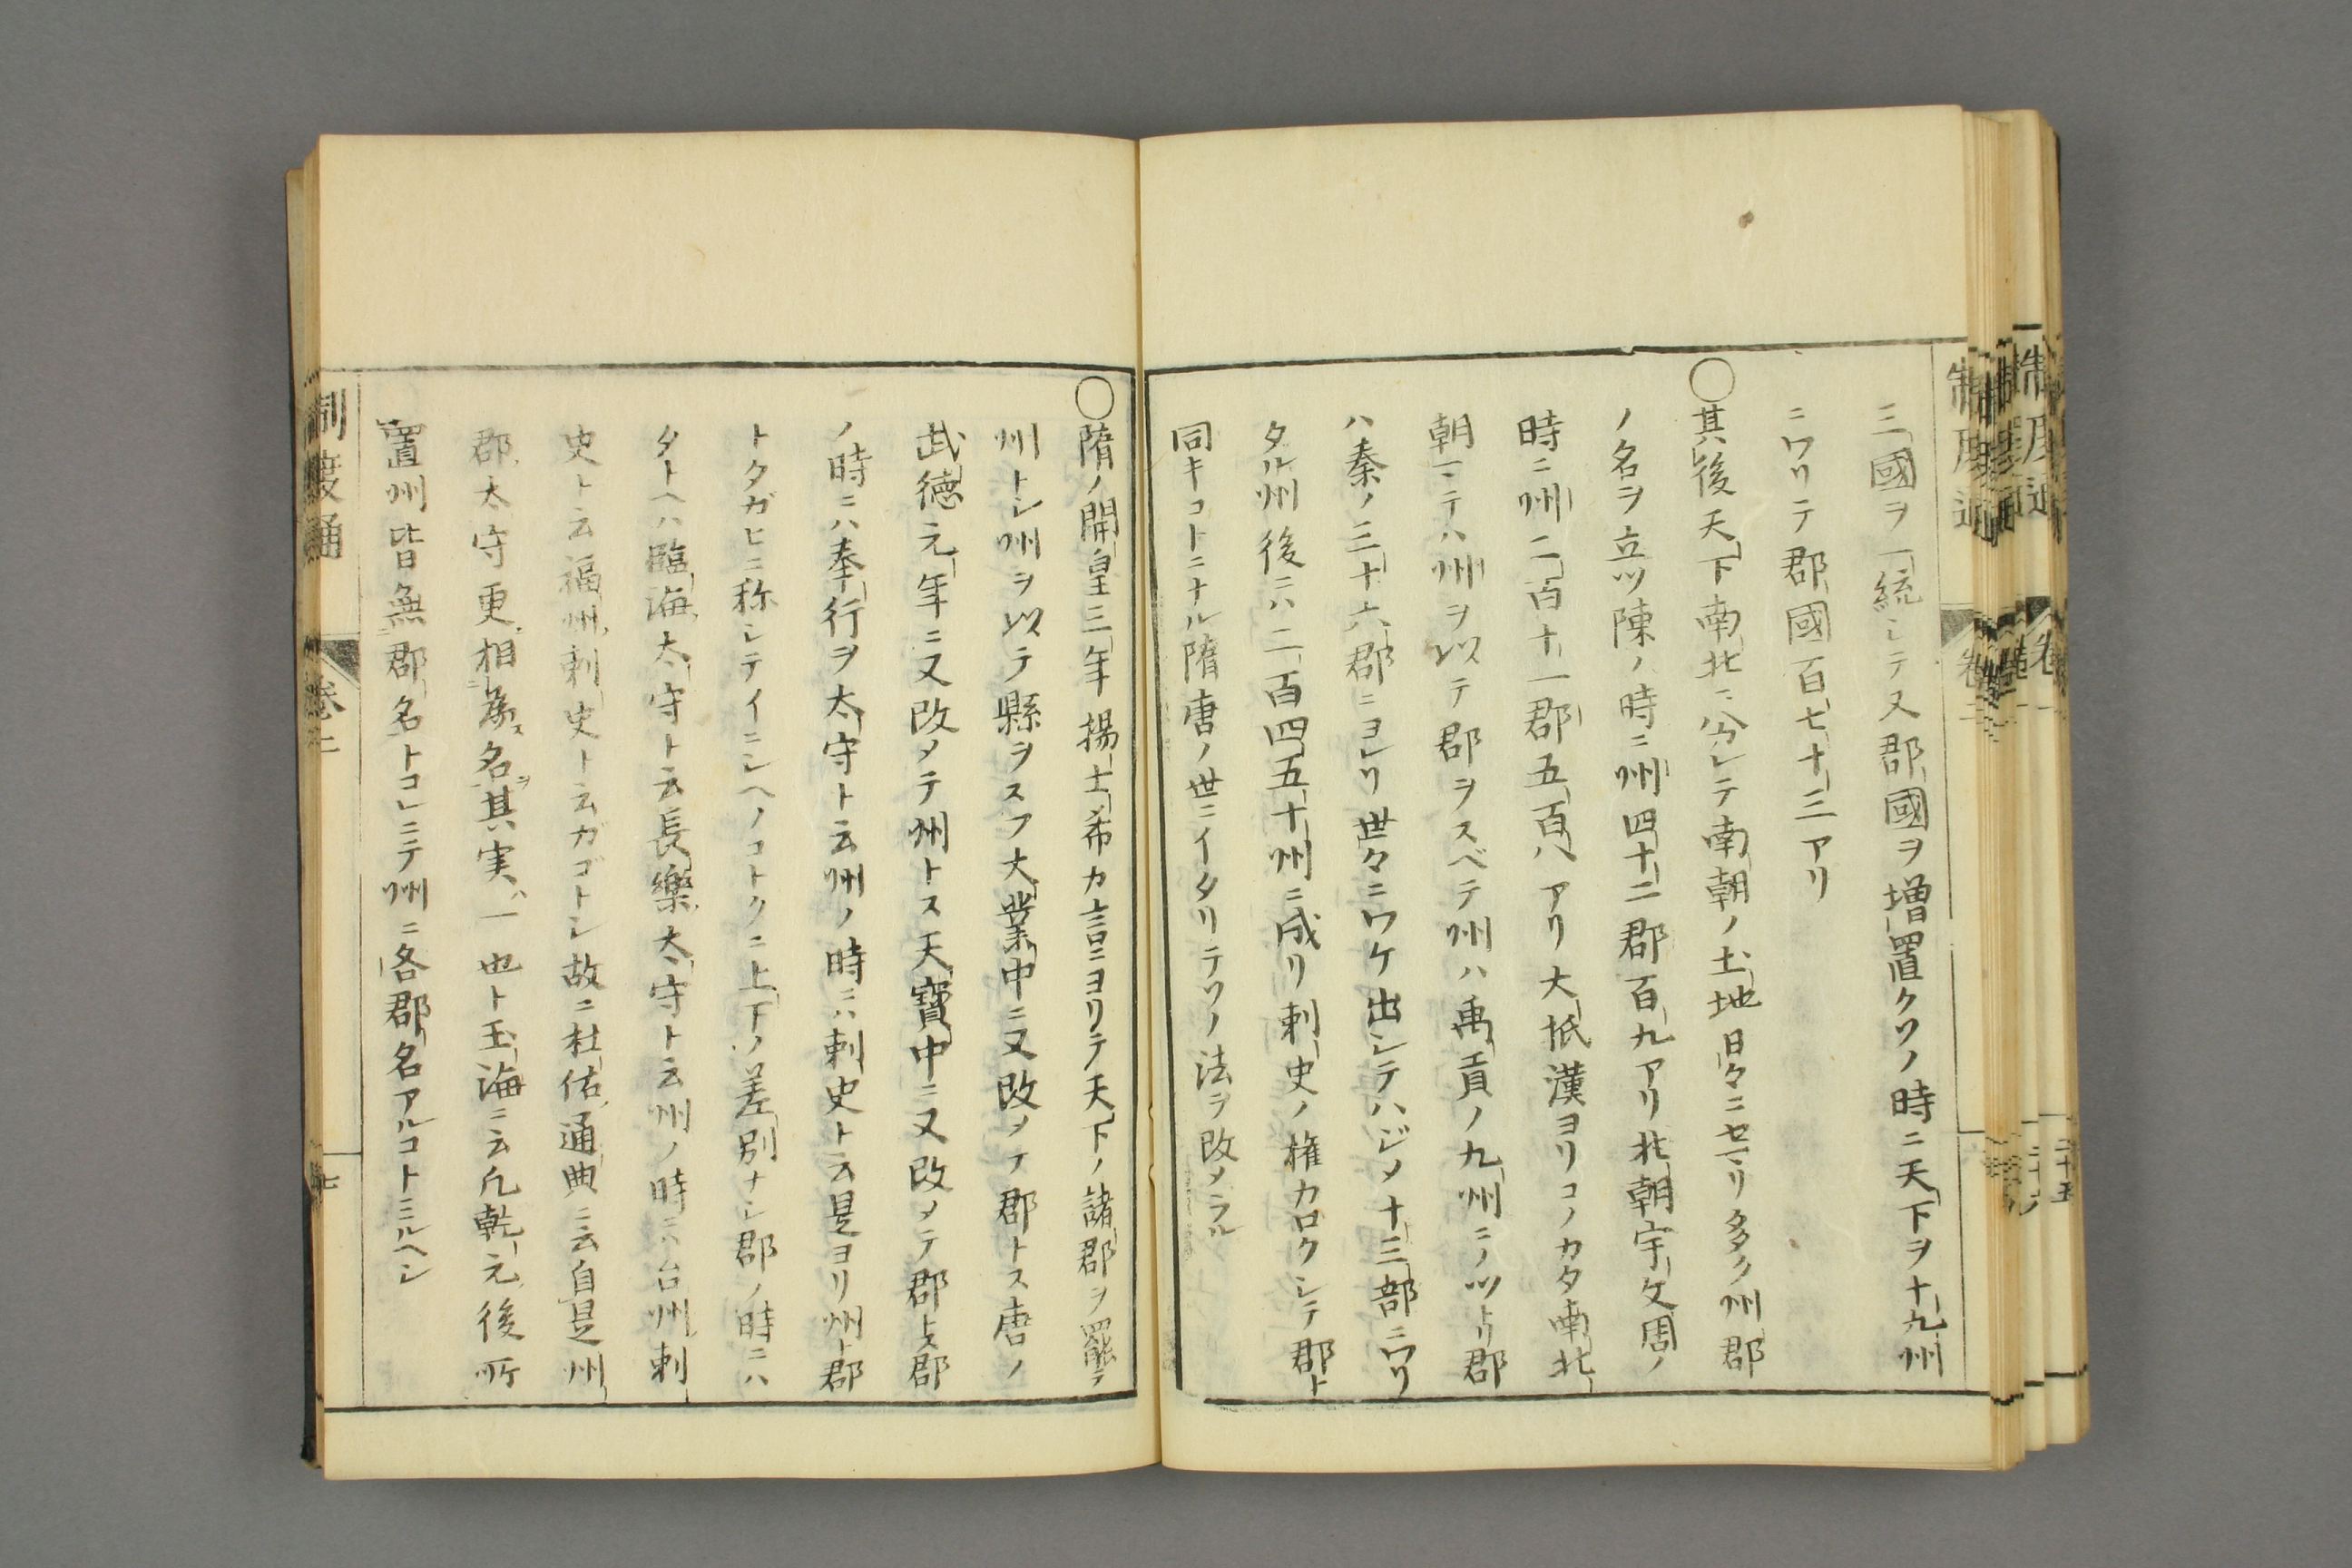 三國ヲ一統シテ又郡國ヲ増置ク,ソノ時ニ天下ヲ十九州
ニワリテ郡國百七十三アリ
〇其後天下南北ニ分レテ南朝ノ土地日々ニセマリ多ク州郡
ノ名ヲ立ツ陳ノ時ニ州四十二郡百九アリ北朝宇文周ノ
時ニ州二百十一郡五百八アリ大抵漢ヨリコノカタ南北
朝マテハ州ヲ以テ郡ヲスベテ州ハ禹貢ノ九州ニノツトリ郡
ハ秦ノ三十六郡ニヨレリ世々ニワケ出シテハジメ十三部ニワリ
タル州後ニハ二百四五十州ニ成リ刺史ノ権カロクシテ郡ト
同キコトニナル隋唐ノ世ニイタリテソノ法ヲ改メラル
〇隋ノ開皇三年揚士希カ言ニヨリテ天下ノ諸郡ヲ罷テ
州トシ州ヲ以テ縣ヲスフ大業中ニ又改メテ郡トス唐ノ
武徳元年ニ又改メテ州トス天寶中ニ又改メテ郡トス郡
ノ時ニハ奉行ヲ太守ト云州ノ時ニハ刺史ト云是ヨリ州ト郡
トタガヒニ称シテイニシヘノコトクニ上下ノ差別ナシ郡ノ時ニハ
タトヘハ臨海太守ト云長樂太守ト云州ノ時ニハ台州刺
史ト云福州刺史ト云ガゴトシ故ニ杜佑通典ニ云自是州
郡太守更相為名其実一也ト玉海ニ云凡乾元後所
置州皆無郡名トコレニテ州ニ各郡名アルコトミルヘシ
制度通 卷二 七